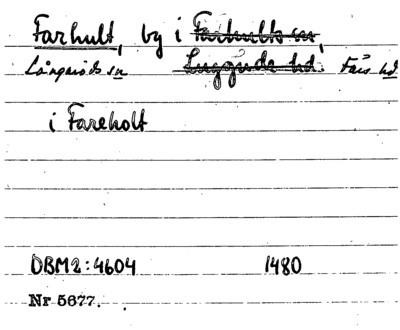 Farhult, by i Farhults sn,
Långaröds sn Luggude hd. Färs hd
i Fareholt
DBM2:4604 1480
Nr 5677.